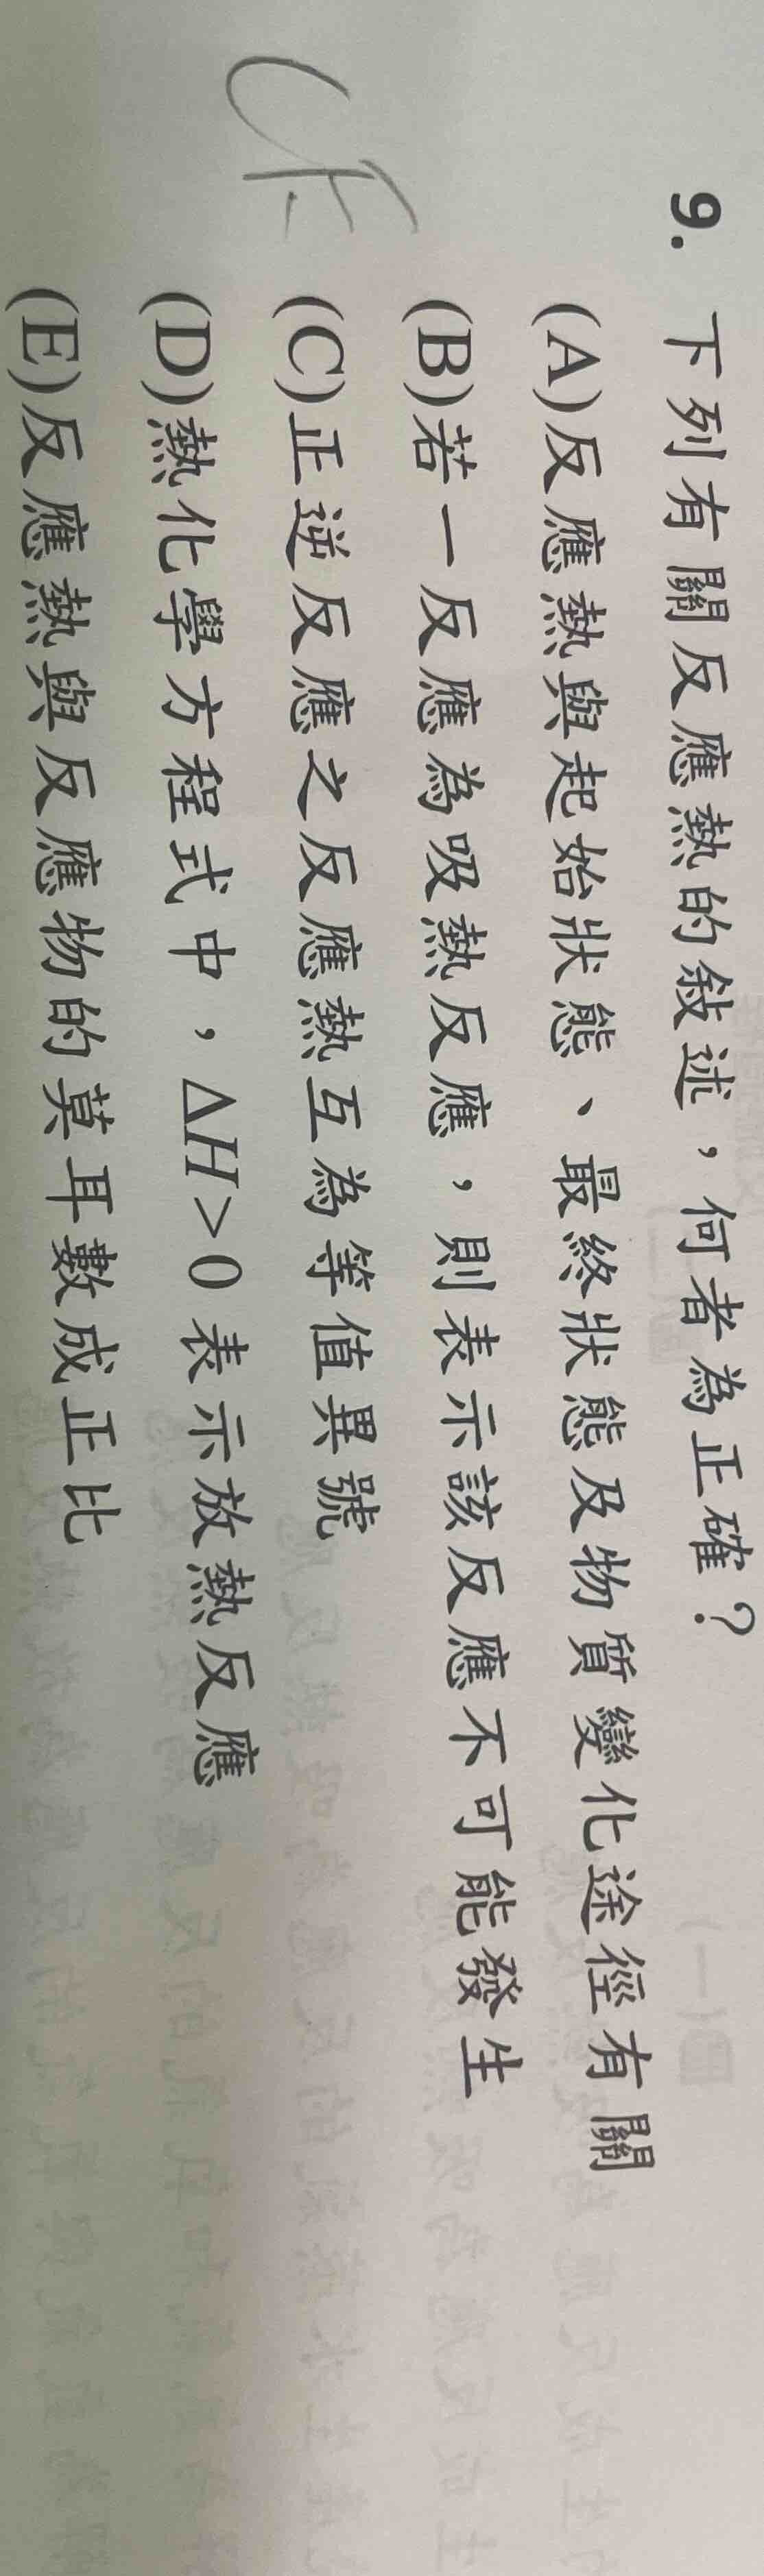 9. 下列有關反應熱的敘述，何者為正確？
(A)反應熱與起始狀態、最終狀態及物質變化途徑有關
(B)若一反應為吸熱反應，則表示該反應不可能發生
(C)正逆反應之反應熱互為等值異號
(D)熱化學方程式中，ΔH>0 表示放熱反應
(E)反應熱與反應物的莫耳數成正比
CE